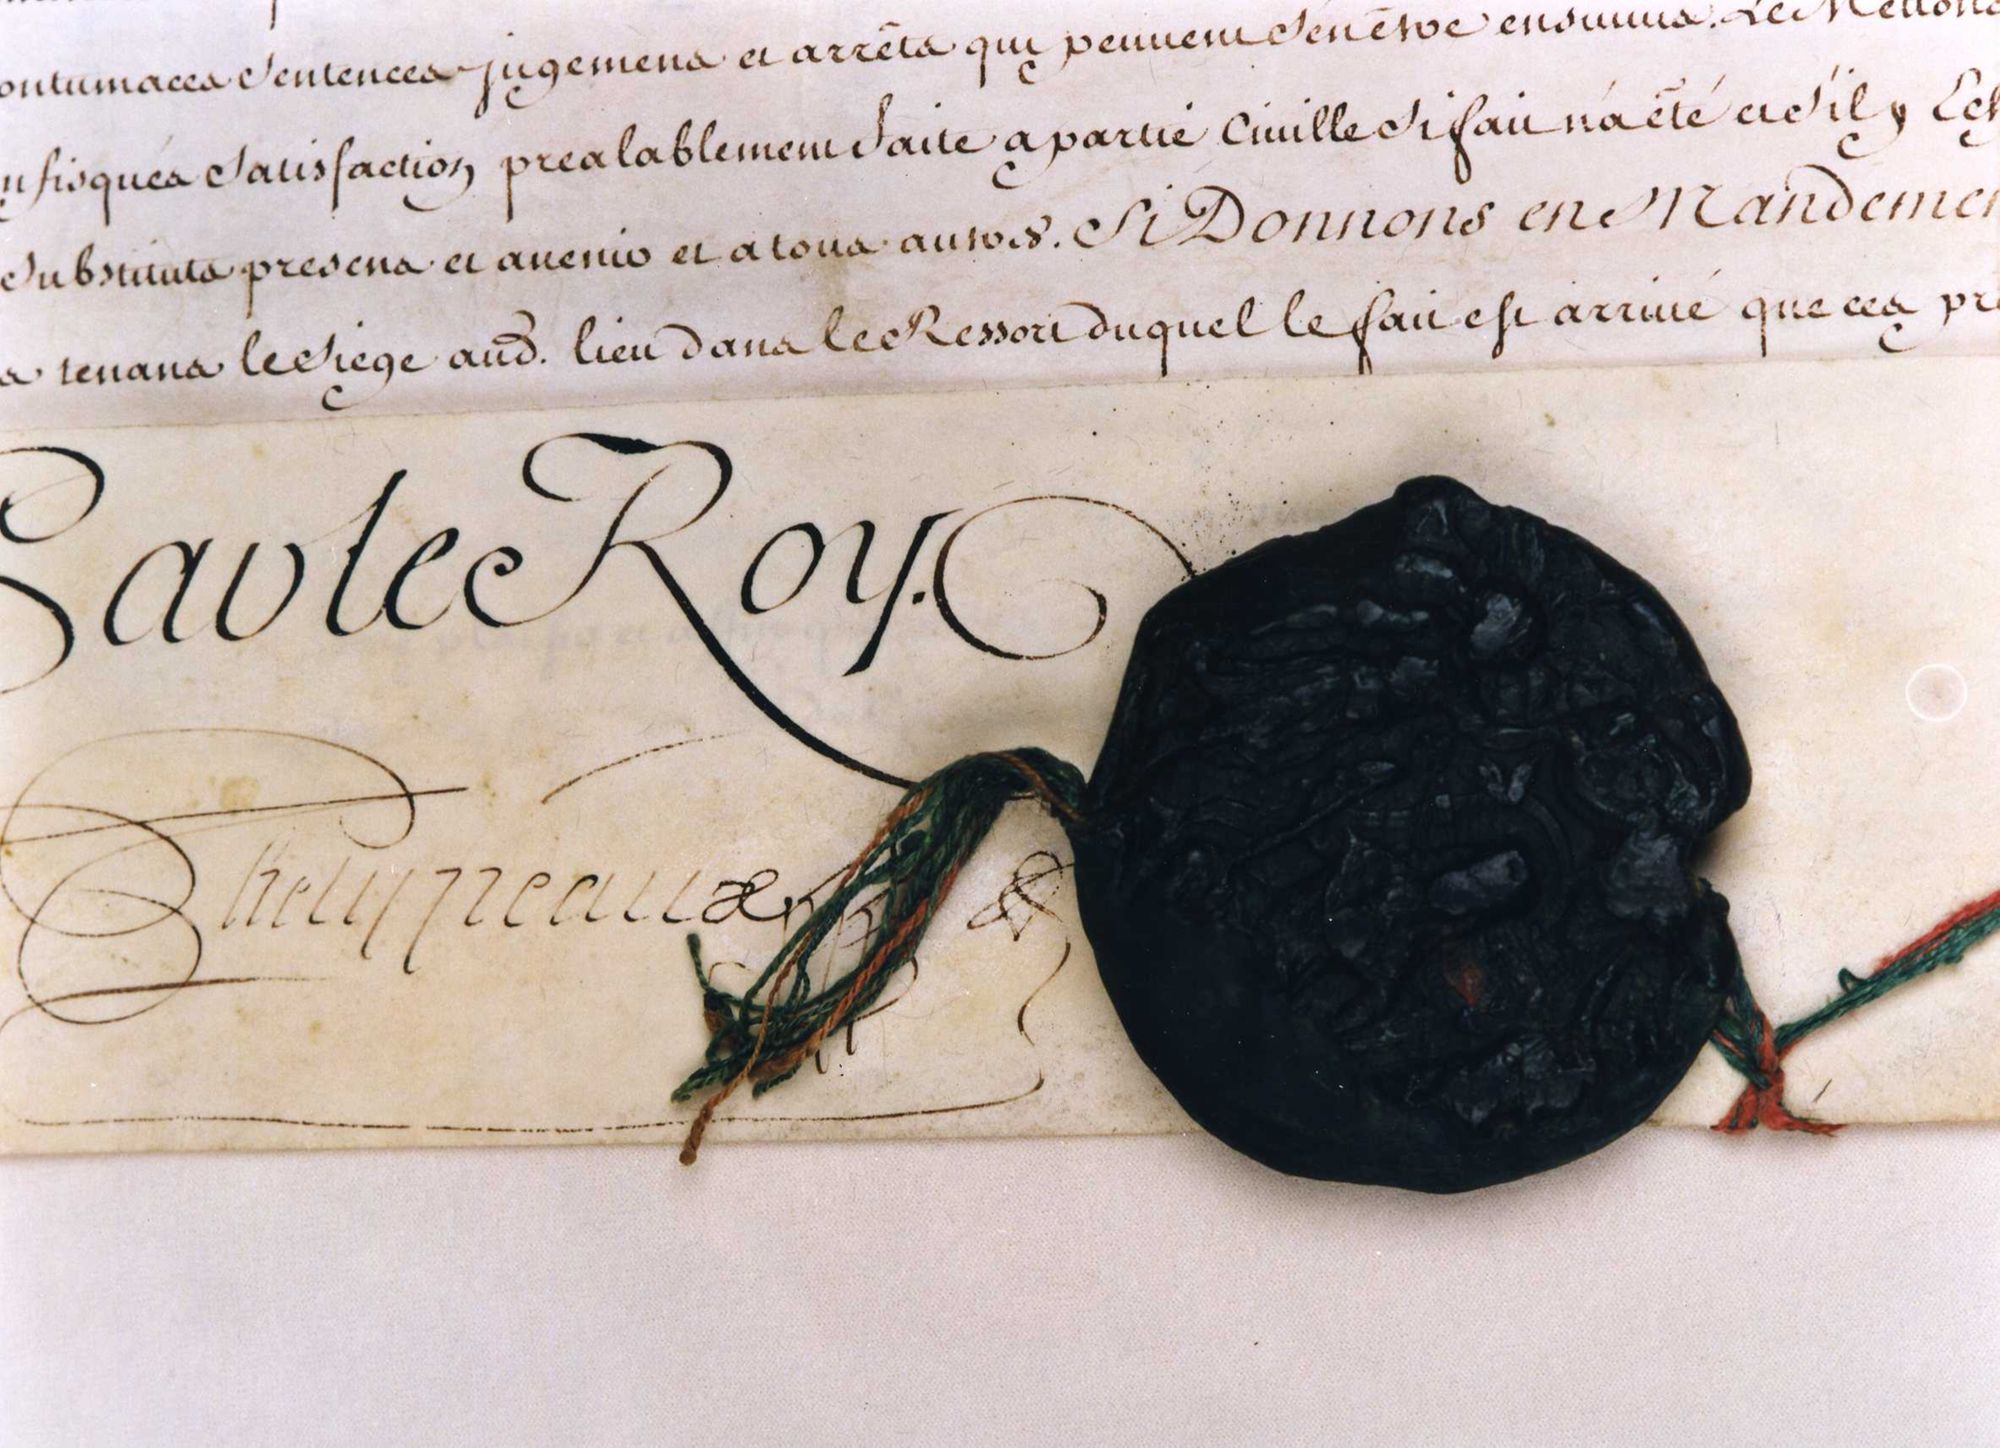 contumaces sentences jugemens et arrêts qui peuvent s'en être ensuivis. Le Mettons
confisqués satisfaction prealablement faite a partie Civille si fait n'a êté et s'il y Echet
substituts presens et avenir et a tous autres. Si Donnons en Mandement
tenans le siege aud. lieu dans le Ressort duquel le fait est arrivé que ces pre
Par le Roy.
Phelypeaux